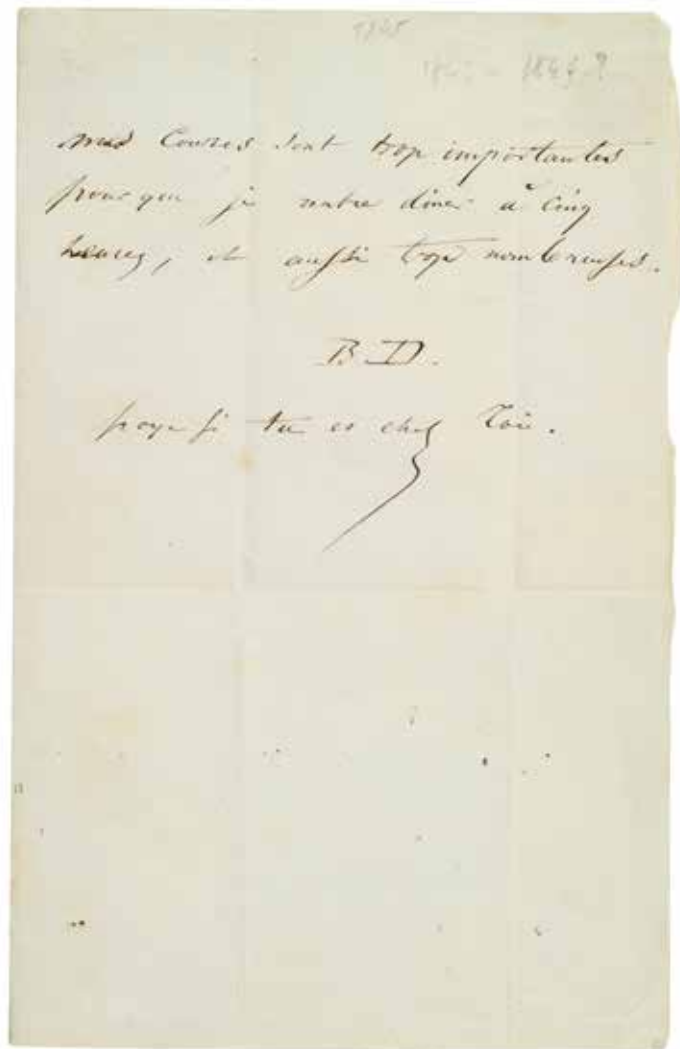 1845
mes Courses sont trop importantes
pour que je rentre diner à Cinq
heures, et aussi trop nombreuses.
B. D.
paye si tu es chez Toi.